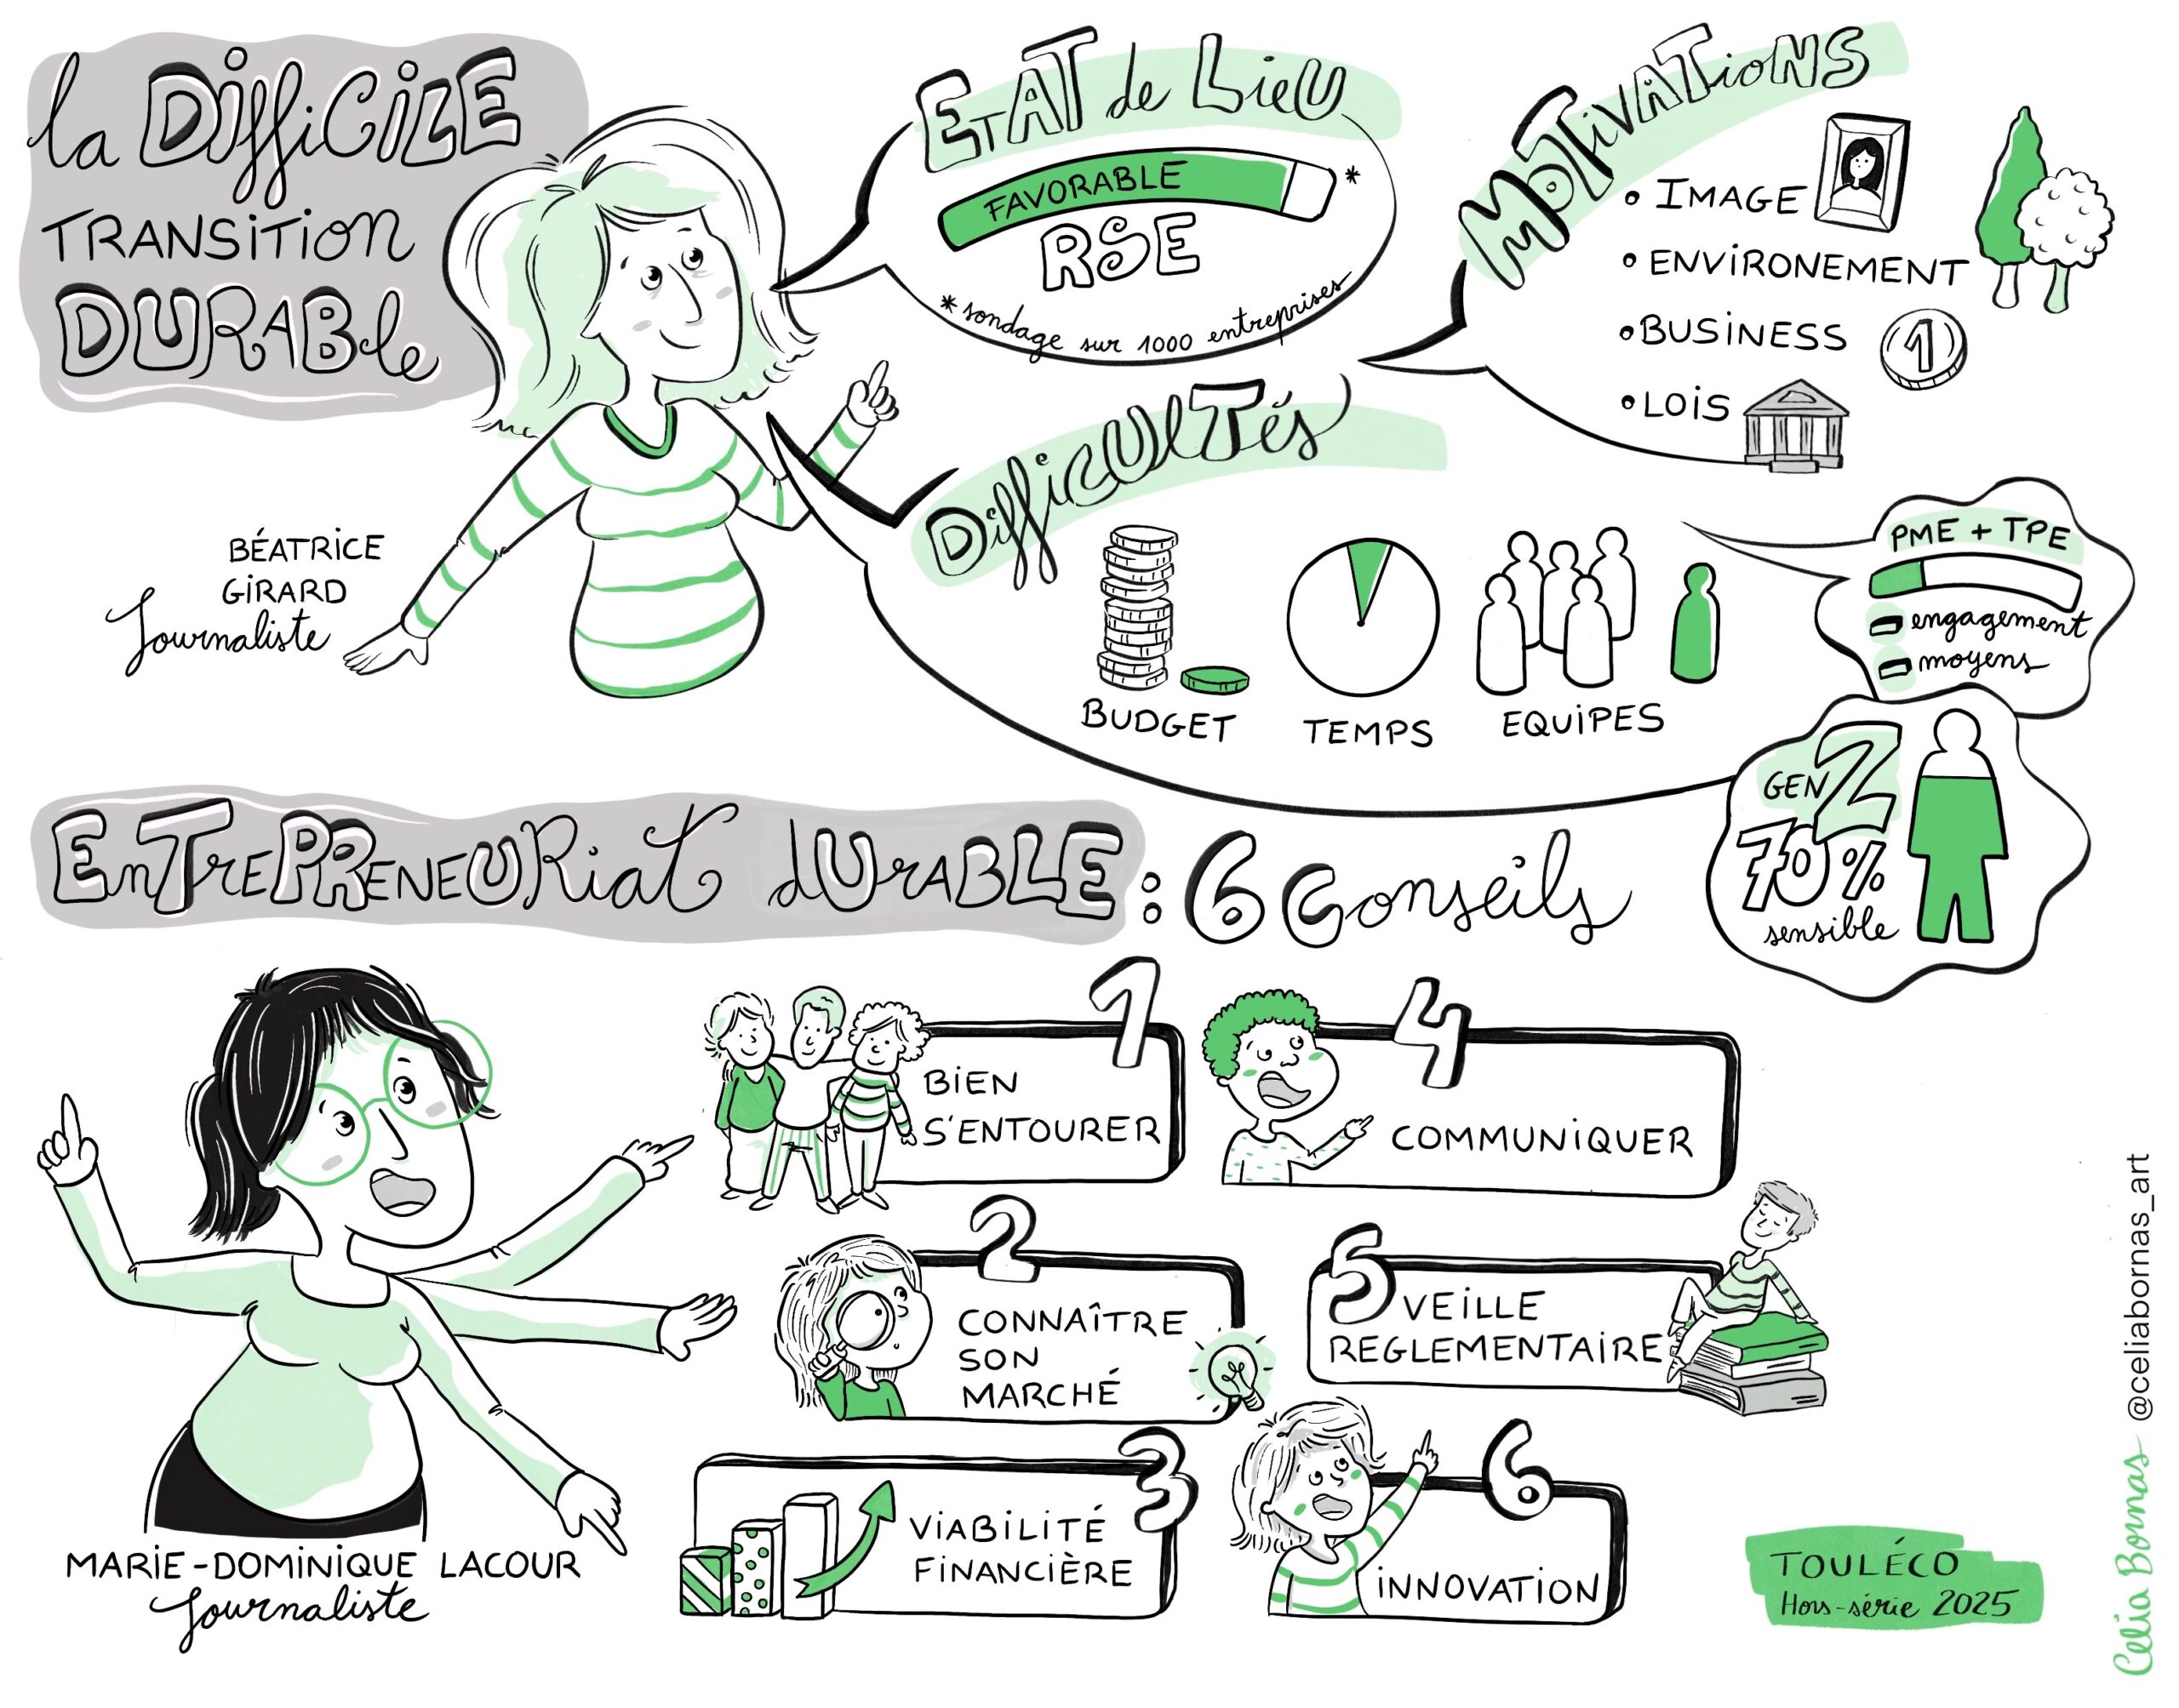 la DiffiCiLE
TRANSiTion
DURABle
BÉATRICE
GIRARD
Journaliste
ETAT de LieU
FAVORABLE
*
RSE
*sondage sur 1000 entreprises
MOTIVATIONS
• IMAGE
• ENVIRONEMENT
• BUSINESS
1
• LOIS
DifficULTés
BUDGET
TEMPS
EQUIPES
PME + TPE
engagement
moyens
GEN Z
70%
sensible
EnTrePRENEURiat dURABLE : 6 Conseils
MARIE-DOMINIQUE LACOUR
Journaliste
1
BIEN
S'ENTOURER
2
CONNAÎTRE
SON
MARCHÉ
3
VIABILITÉ
FINANCIÈRE
4
COMMUNIQUER
5
VEILLE
REGLEMENTAIRE
6
INNOVATION
TOULÉCO
Hors-série 2025
Celia Bornas @celiabornas_art